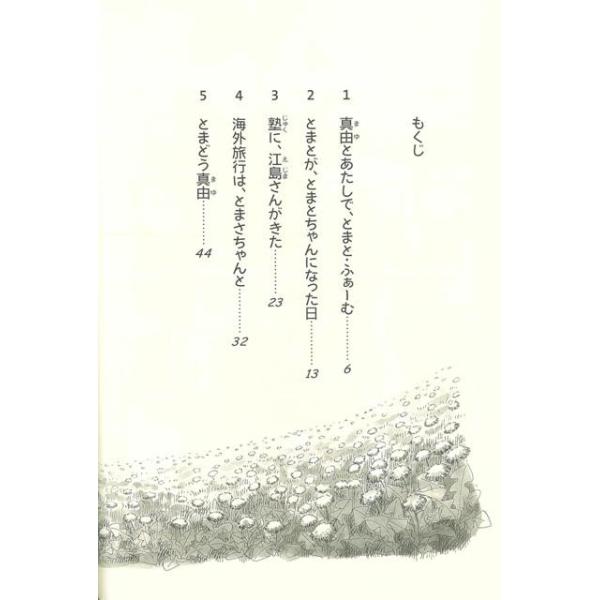 もくじ
1 真由とあたしで、とまと・ふぁーむ…………6
2 とまとが、とまとちゃんになった日…………13
3 塾に、江島さんがきた…………23
4 海外旅行は、とまさちゃんと…………32
5 とまどう真由…………44